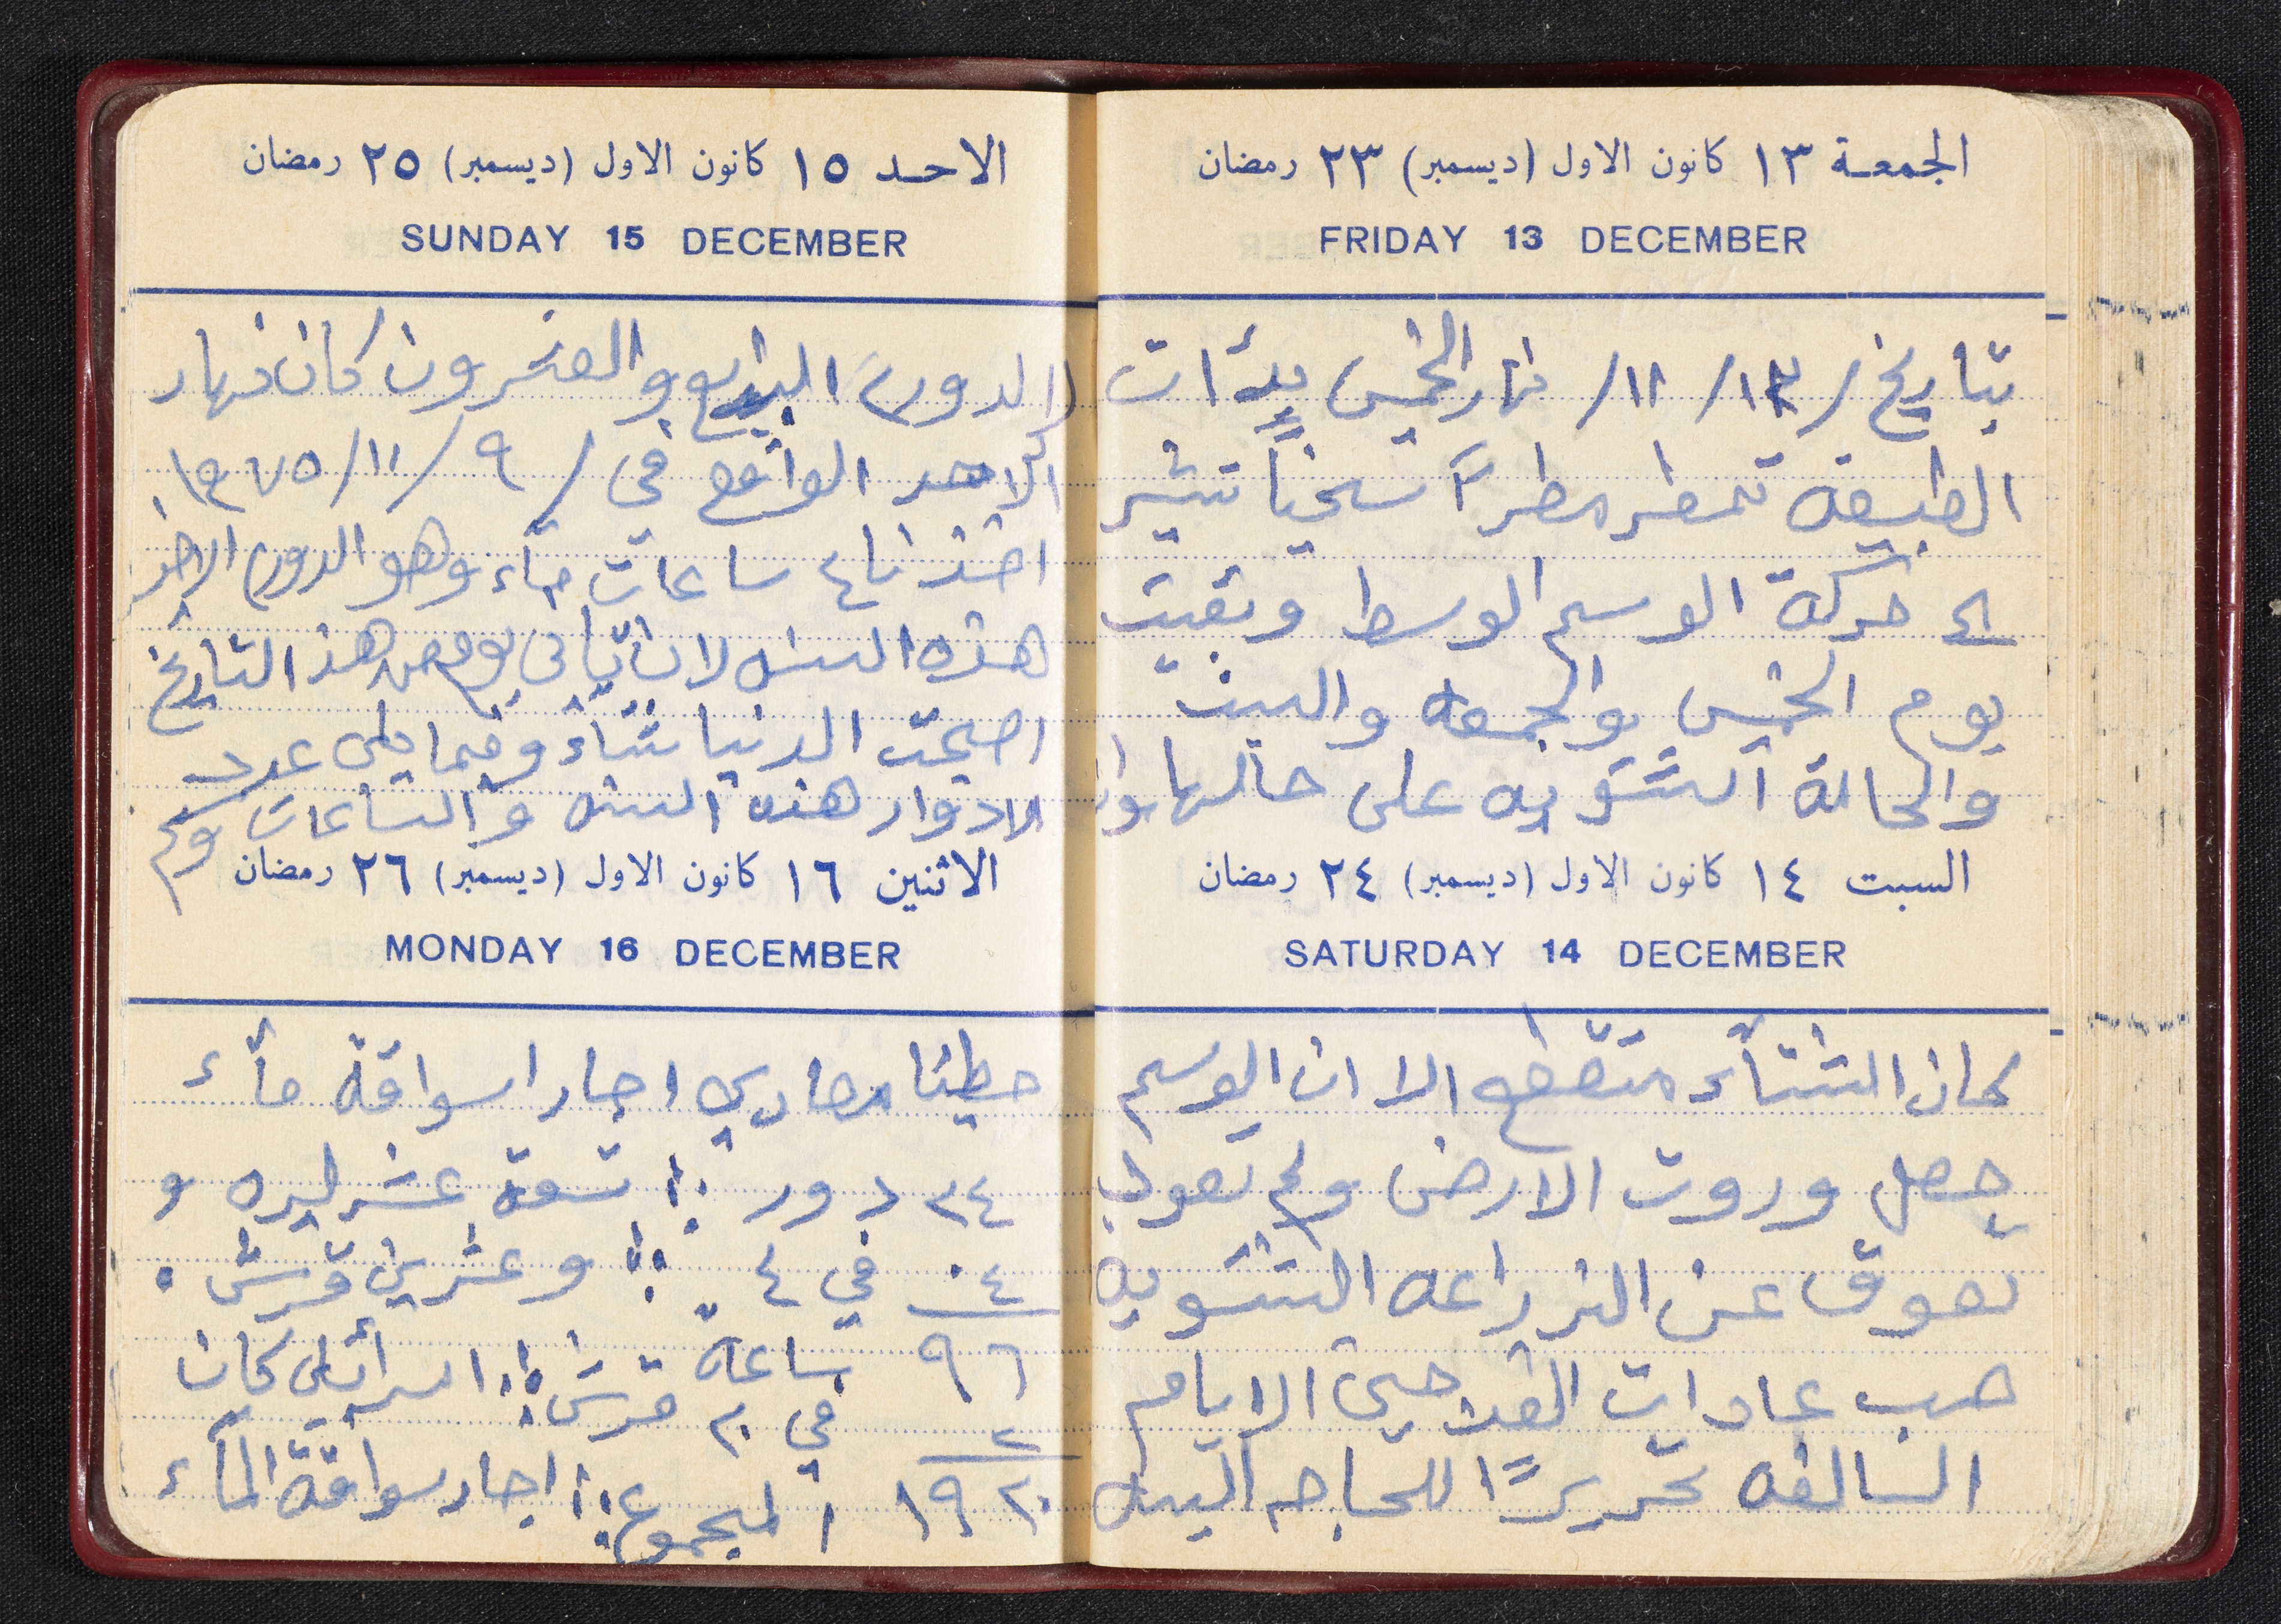 الجمعة ١٣ كانون الاول (ديسمبر) ٢٣ رمضان
FRIDAY 13 DECEMBER
بتاريخ /١٣/ ١١/ نهار الخميس بدئات
الطبيعه تمطر مطراً سخياً تشير
الى حركة الوسم الوسط وبقيت
يوم الخميس والجمعه والسبت
والحالة الشتويه على حالها وان
السبت ١٤ كانون الاول (ديسمبر) ٢٤ رمضان
SATURDAY 14 DECEMBER
كان الشتاء متقطع الا ان الوسم
حصل وروت الارض ولم تعود
تعوق عن الزراعه الشتويه
حسب عادات القدحين الايام
السالفه تحريراً للحاجه اليه
الاحد ١٥ كانون الاول (ديسمبر) ٢٥ رمضان
SUNDAY 15 DECEMBER
الدور الرابع والعشرون كان نهار
الاحد الواقع في / ٩ /١١/ ١٩٧٥
اخذنا ٤ ساعات ماء وهو الدور الاخير
هذه السنه لان ثاني يوم من هذ التاريخ
اصبحت الدنيا شتاء وفيما يلي عدد
الادوار هذه السنه والساعات وكم
الاثنين ١٦ كانون الاول (ديسمبر) ٢٦ رمضان
MONDAY 16 DECEMBER
حطينا مصاري اجار اسواقة مآء
٢٤ دور :: تسعة عشر ليره و
٠٤ في ٤ :: وعشرين قرش .
٩٦ ساعة قرش :: اسرائيلي كان
٢ في ٢٠
١٩٢٠ المجموع :: اجار سواقة المآء